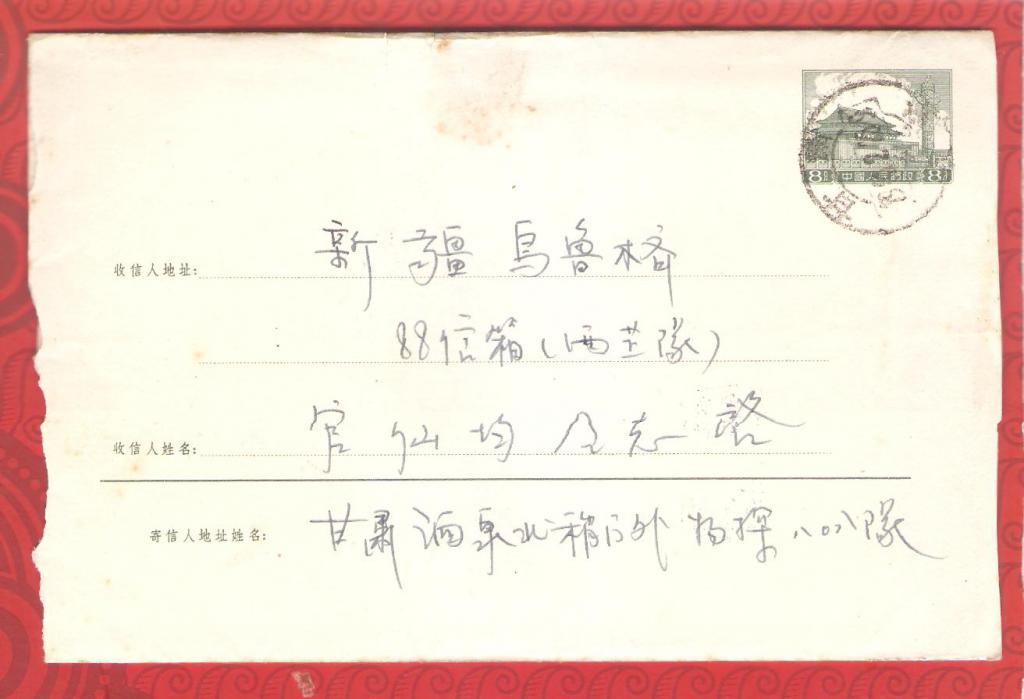 8分 中國人民郵政 8分
收信人地址: 新疆烏魯木齐
88信箱(西芷隊)
收信人姓名: 官仙均仝志啓
寄信人地址姓名: 甘肅酒泉北稍门外物探八〇八隊